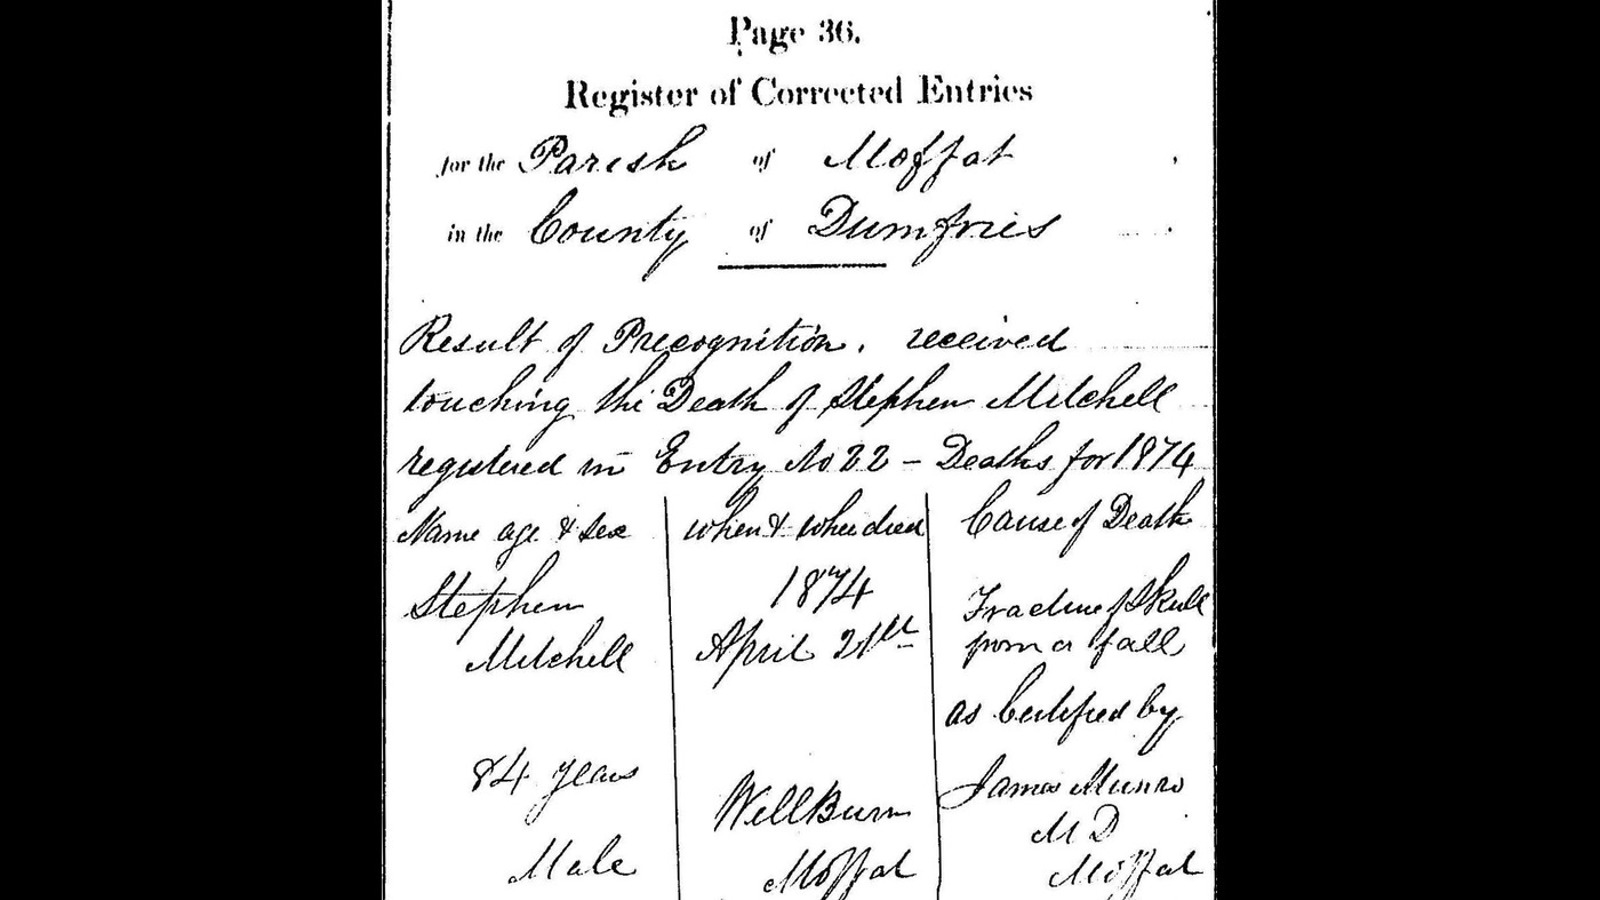 Page 36.
Register of Corrected Entries
for the Parish of Moffat
in the County of Dumfries
Result of Precognition. received
touching the Death of Stephen Mitchell
registered in Entry No 22 – Deaths for 1874
Name age & sex
Stephen
Mitchell
84 years
Male
when & where died
1874
April 21st
WellBurn
Moffat
Cause of Death
Fracture of Skull
from a fall
as Certified by
James Munro
M D
Moffat